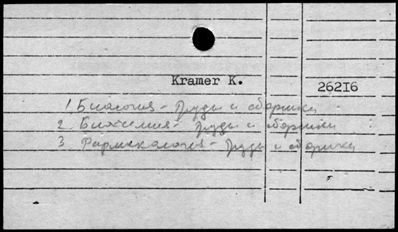 Kramer K.
26216
1. Биология - Труды и сборники
2. Биохимия - Труды и сборники
3. Фармакология - Труды и сборники